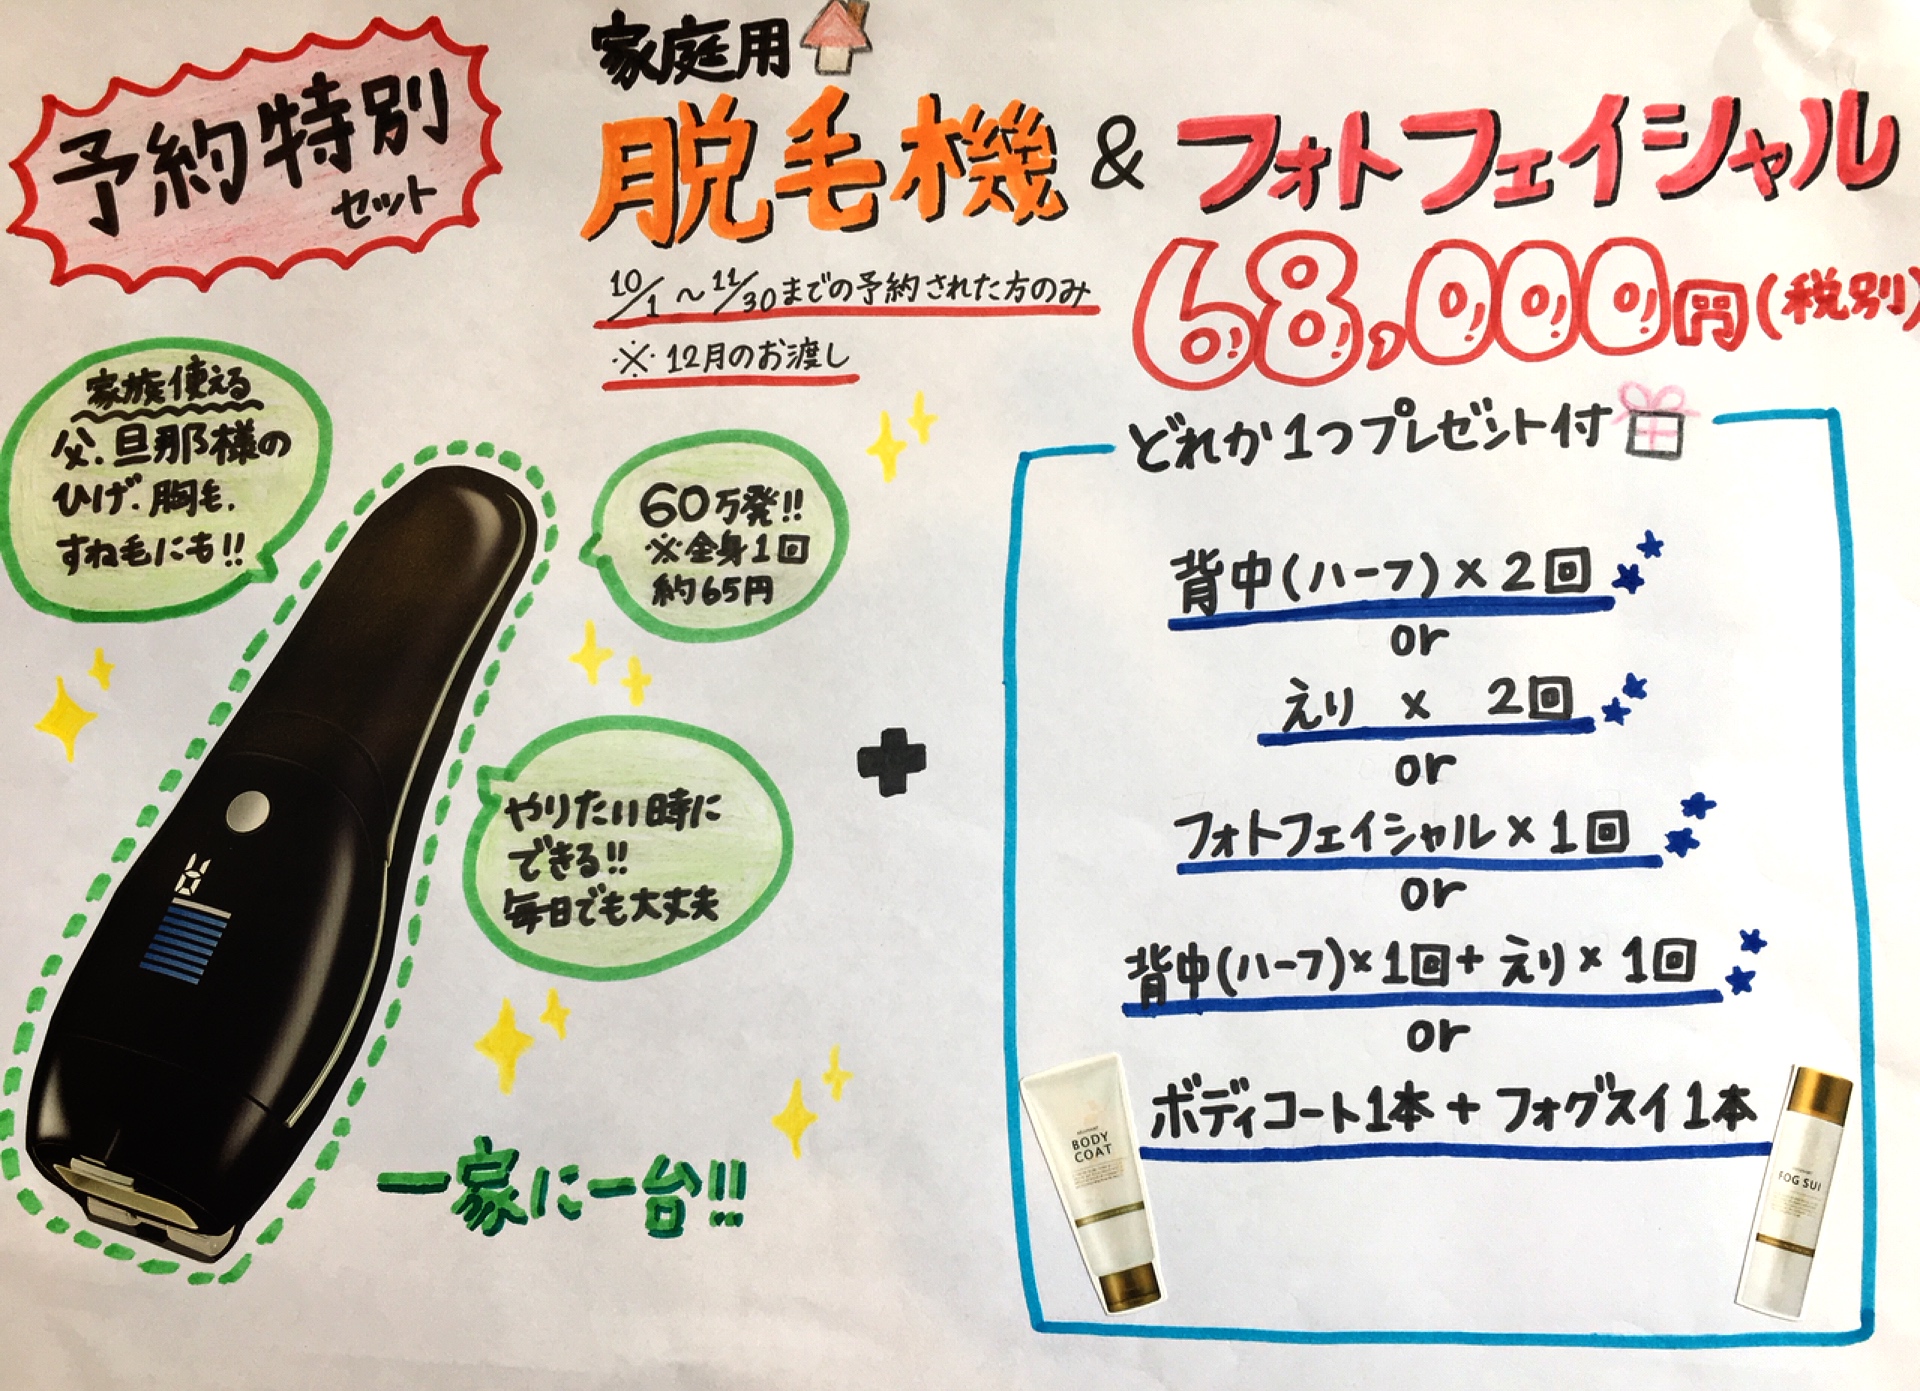 予約特別
セット
家庭用
脱毛機 & フォトフェイシャル
10/1〜11/30までの予約された方のみ
※12月のお渡し
68,000円(税別)
家族使える
父.旦那様の
ひげ.胸毛.
すね毛にも!!
60万発!!
※全身1回
約65円
やりたい時に
できる!!
毎日でも大丈夫
一家に一台!!
+
どれか1つプレゼント付
背中(ハーフ)×2回
or
えり × 2回
or
フォトフェイシャル×1回
or
背中(ハーフ)×1回+えり×1回
or
ボディコート1本+フォグスイ1本
BODY
COAT
FOG SUI